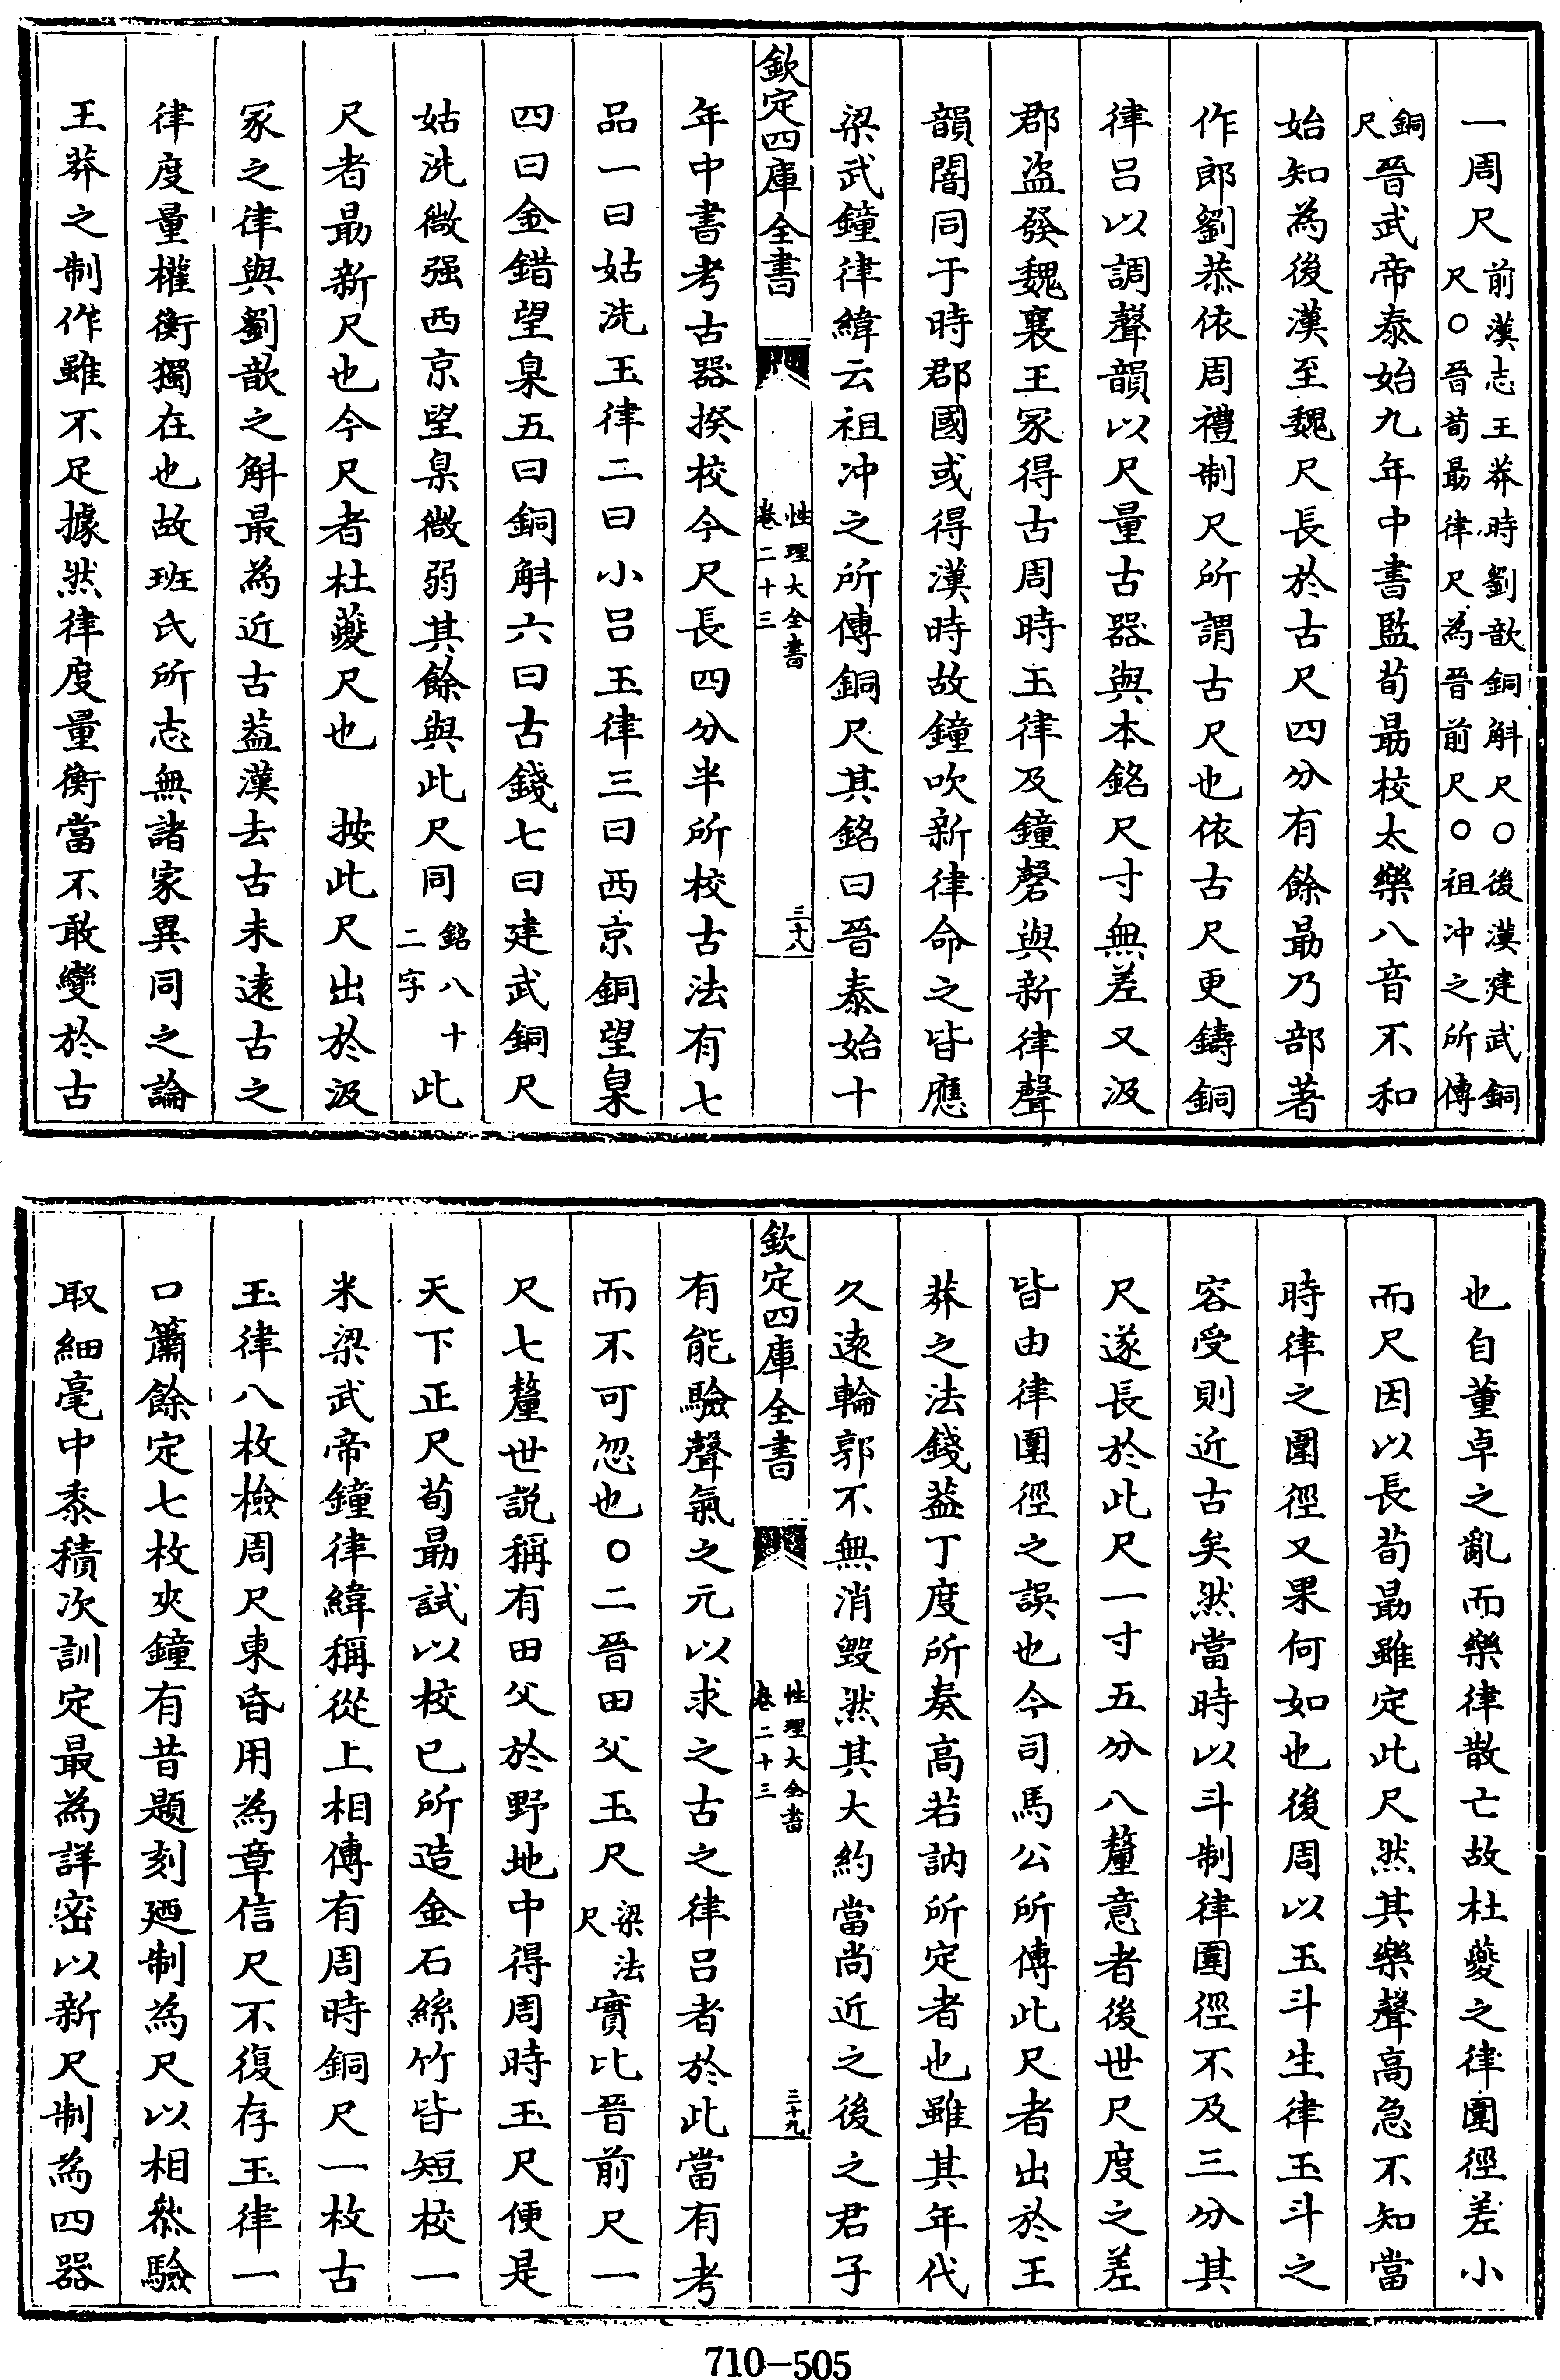 一周尺前漢志王莽時劉歆銅斛尺〇後漢建武銅尺〇晉荀勗律尺為晉前尺〇祖冲之所傳
銅尺晉武帝泰始九年中書監荀勗校太樂八音不和
始知為後漢至魏尺長於古尺四分有餘勗乃部著
作郎劉恭依周禮制尺所謂古尺也依古尺更鑄銅
律呂以調聲韻以尺量古器與本銘尺寸無差又汲
郡盜發魏襄王冢得古周時玉律及鐘磬與新律聲
韻闇同于時郡國或得漢時故鐘吹新律命之皆應
梁武鐘律緯云祖冲之所傳銅尺其銘曰晉泰始十
欽定四庫全書
性理大全書
卷二十三
三十八
年中書考古器揆校今尺長四分半所校古法有七
品一曰姑洗玉律二曰小呂玉律三曰西京銅望臬
四曰金錯望臬五曰銅斛六曰古錢七曰建武銅尺
姑洗微强西京望臬微弱其餘與此尺同銘八十二字此
尺者勗新尺也今尺者杜夔尺也　按此尺出於汲
冢之律與劉歆之斛最為近古葢漢去古未遠古之
律度量權衡獨在也故班氏所志無諸家異同之論
王莽之制作雖不足據然律度量衡當不敢變於古
也自董卓之亂而樂律散亡故杜夔之律圍徑差小
而尺因以長荀勗雖定此尺然其樂聲高急不知當
時律之圍徑又果何如也後周以玉斗生律玉斗之
容受則近古矣然當時以斗制律圍徑不及三分其
尺遂長於此尺一寸五分八釐意者後世尺度之差
皆由律圍徑之誤也今司馬公所傳此尺者出於王
莽之法錢葢丁度所奏高若訥所定者也雖其年代
久遠輪郭不無消毀然其大約當尚近之後之君子
欽定四庫全書
性理大全書
卷二十三
三十九
有能驗聲氣之元以求之古之律呂者於此當有考
而不可忽也〇二晉田父玉尺梁法尺實比晉前尺一
尺七釐世説稱有田父於野地中得周時玉尺便是
天下正尺荀勗試以校已所造金石絲竹皆短校一
米梁武帝鐘律緯稱從上相傳有周時銅尺一枚古
玉律八枚檢周尺東昏用為章信尺不復存玉律一
口簫餘定七枚夾鐘有昔題刻廼制為尺以相叅驗
取細毫中黍積次訓定最為詳密以新尺制為四器
710-505